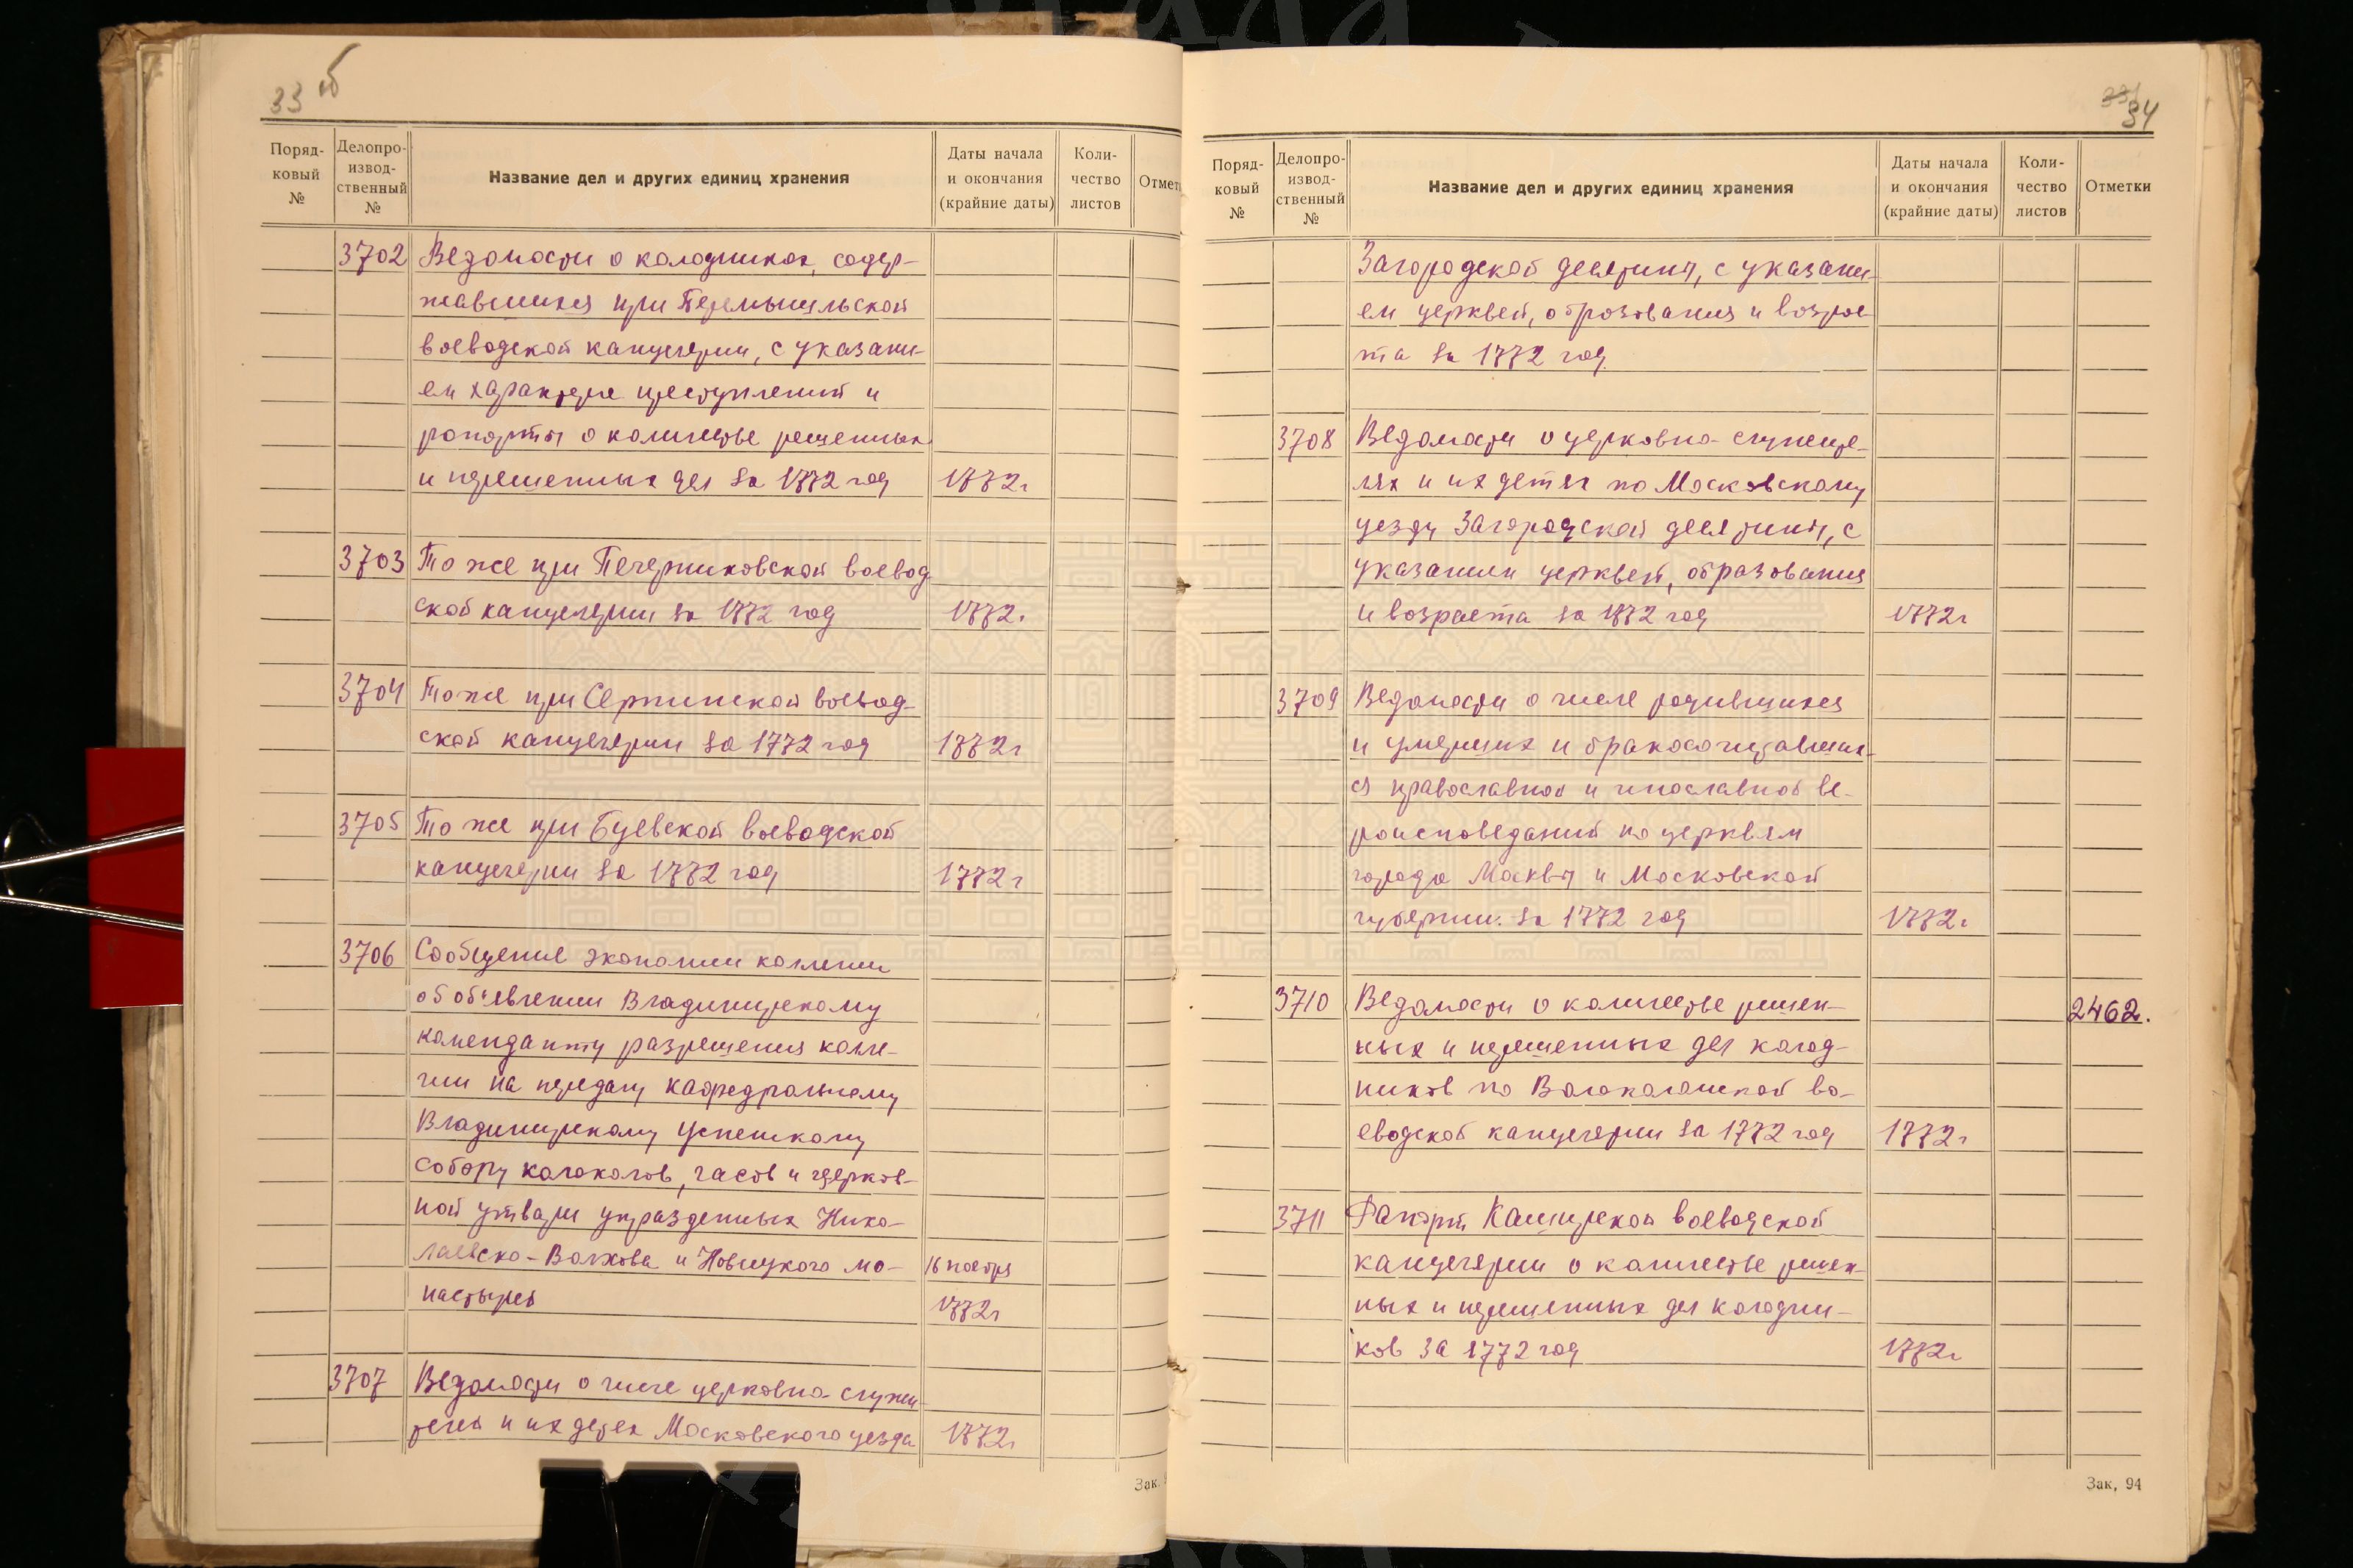 33 об
Поряд-
ковый
№
Делопро-
извод-
ственный
№
Название дел и других единиц хранения
Даты начала
и окончания
(крайние даты)
Коли-
чество
листов
Отмет
3702 Ведомости о колодниках, содер-
жавшихся при Перемышльской
воеводской канцелярии, с указани-
ем характера преступлений и
рапорты о количестве решенных
и нерешенных дел за 1772 год 1772г
3703 То же при Печерниковской воевод
ской канцелярии за 1772 год 1772.
3704 То же при Серпинской воевод-
ской канцелярии за 1772 год 1772г
3705 То же при Буевской воеводской
канцелярии за 1772 год 1772г
3706 Сообщение экономии коллегии
об об'явлении Владимирскому
коменданту разрешения колле-
гии на передачу кафедральному
Владимирскому Успенскому
собору колоколов, часов и церков-
ной утвари упраздненных Нико-
лаевско-Волхова и Новлуцкого мо- 16 ноября
настырей 1772г
3707 Ведомости о числе церковно-служи
телей и их детей Московского уезда 1772г
Зак.
34
Поряд-
ковый
№
Делопро-
извод-
ственный
№
Название дел и других единиц хранения
Даты начала
и окончания
(крайние даты)
Коли-
чество
листов
Отметки
Загородской десятины, с указани-
ем церквей, образования и возрас-
та за 1772 год
3708 Ведомости о церковно-служите-
лях и их детях по Московскому
уезду Загородской десятины, с
указанием церквей, образования
и возраста за 1772 год 1772г
3709 Ведомости о числе родившихся
и умерших и бракосочетавших-
ся православной и инославной ве-
роисповеданий по церквям
города Москвы и Московской
губернии за 1772 год 1772г
3710 Ведомости о количестве решен- 2462.
ных и нерешенных дел колод-
ников по Волоколамской во-
еводской канцелярии за 1772 год 1772г
3711 Рапорт Каширской воеводской
канцелярии о количестве решен-
ных и нерешенных дел колодни-
ков за 1772 год 1772г
Зак, 94